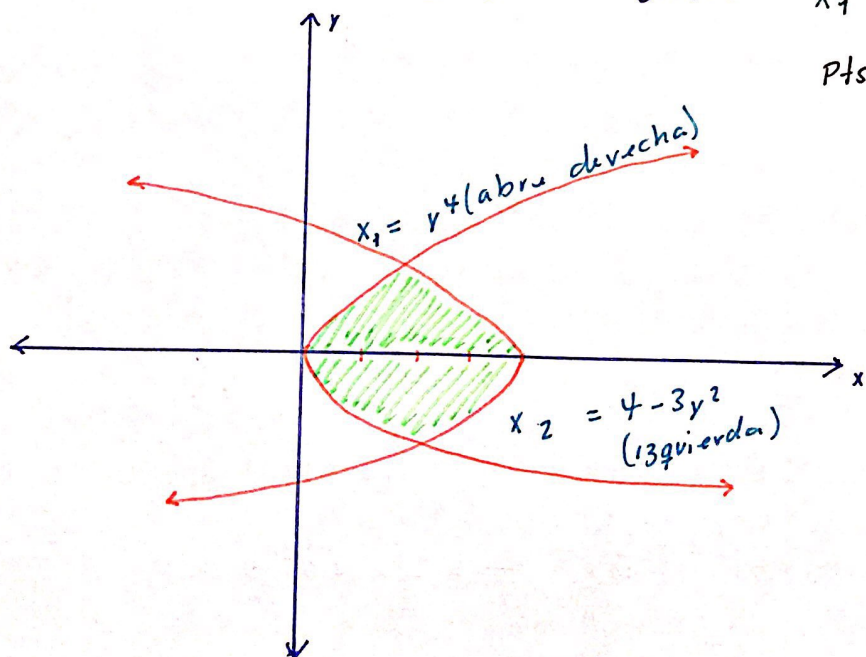 y
x₁
Pts
x₁ = y⁴ (abre derecha)
x
x₂ = 4 - 3y²
(izquierda)